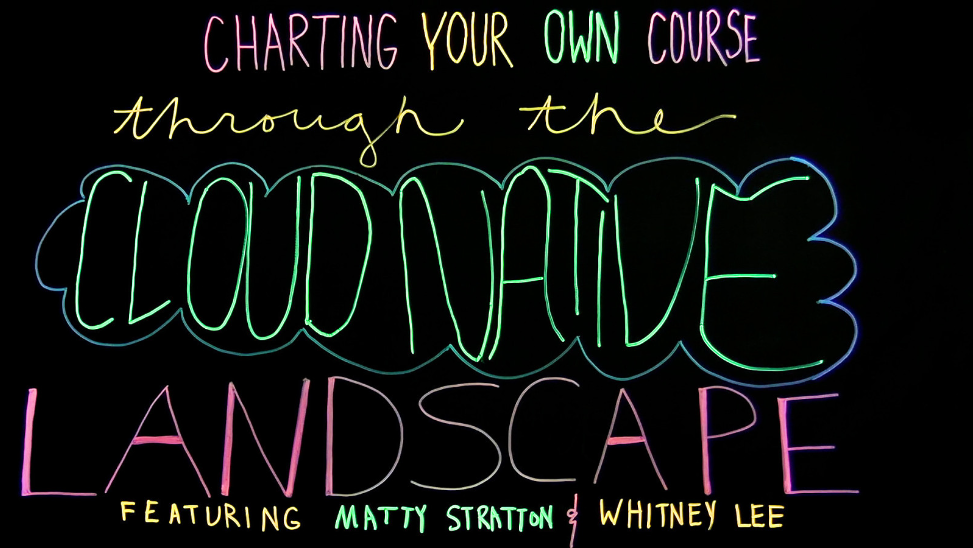 CHARTING YOUR OWN COURSE
through the
CLOUD NATIVE
LANDSCAPE
FEATURING MATTY STRATTON & WHITNEY LEE